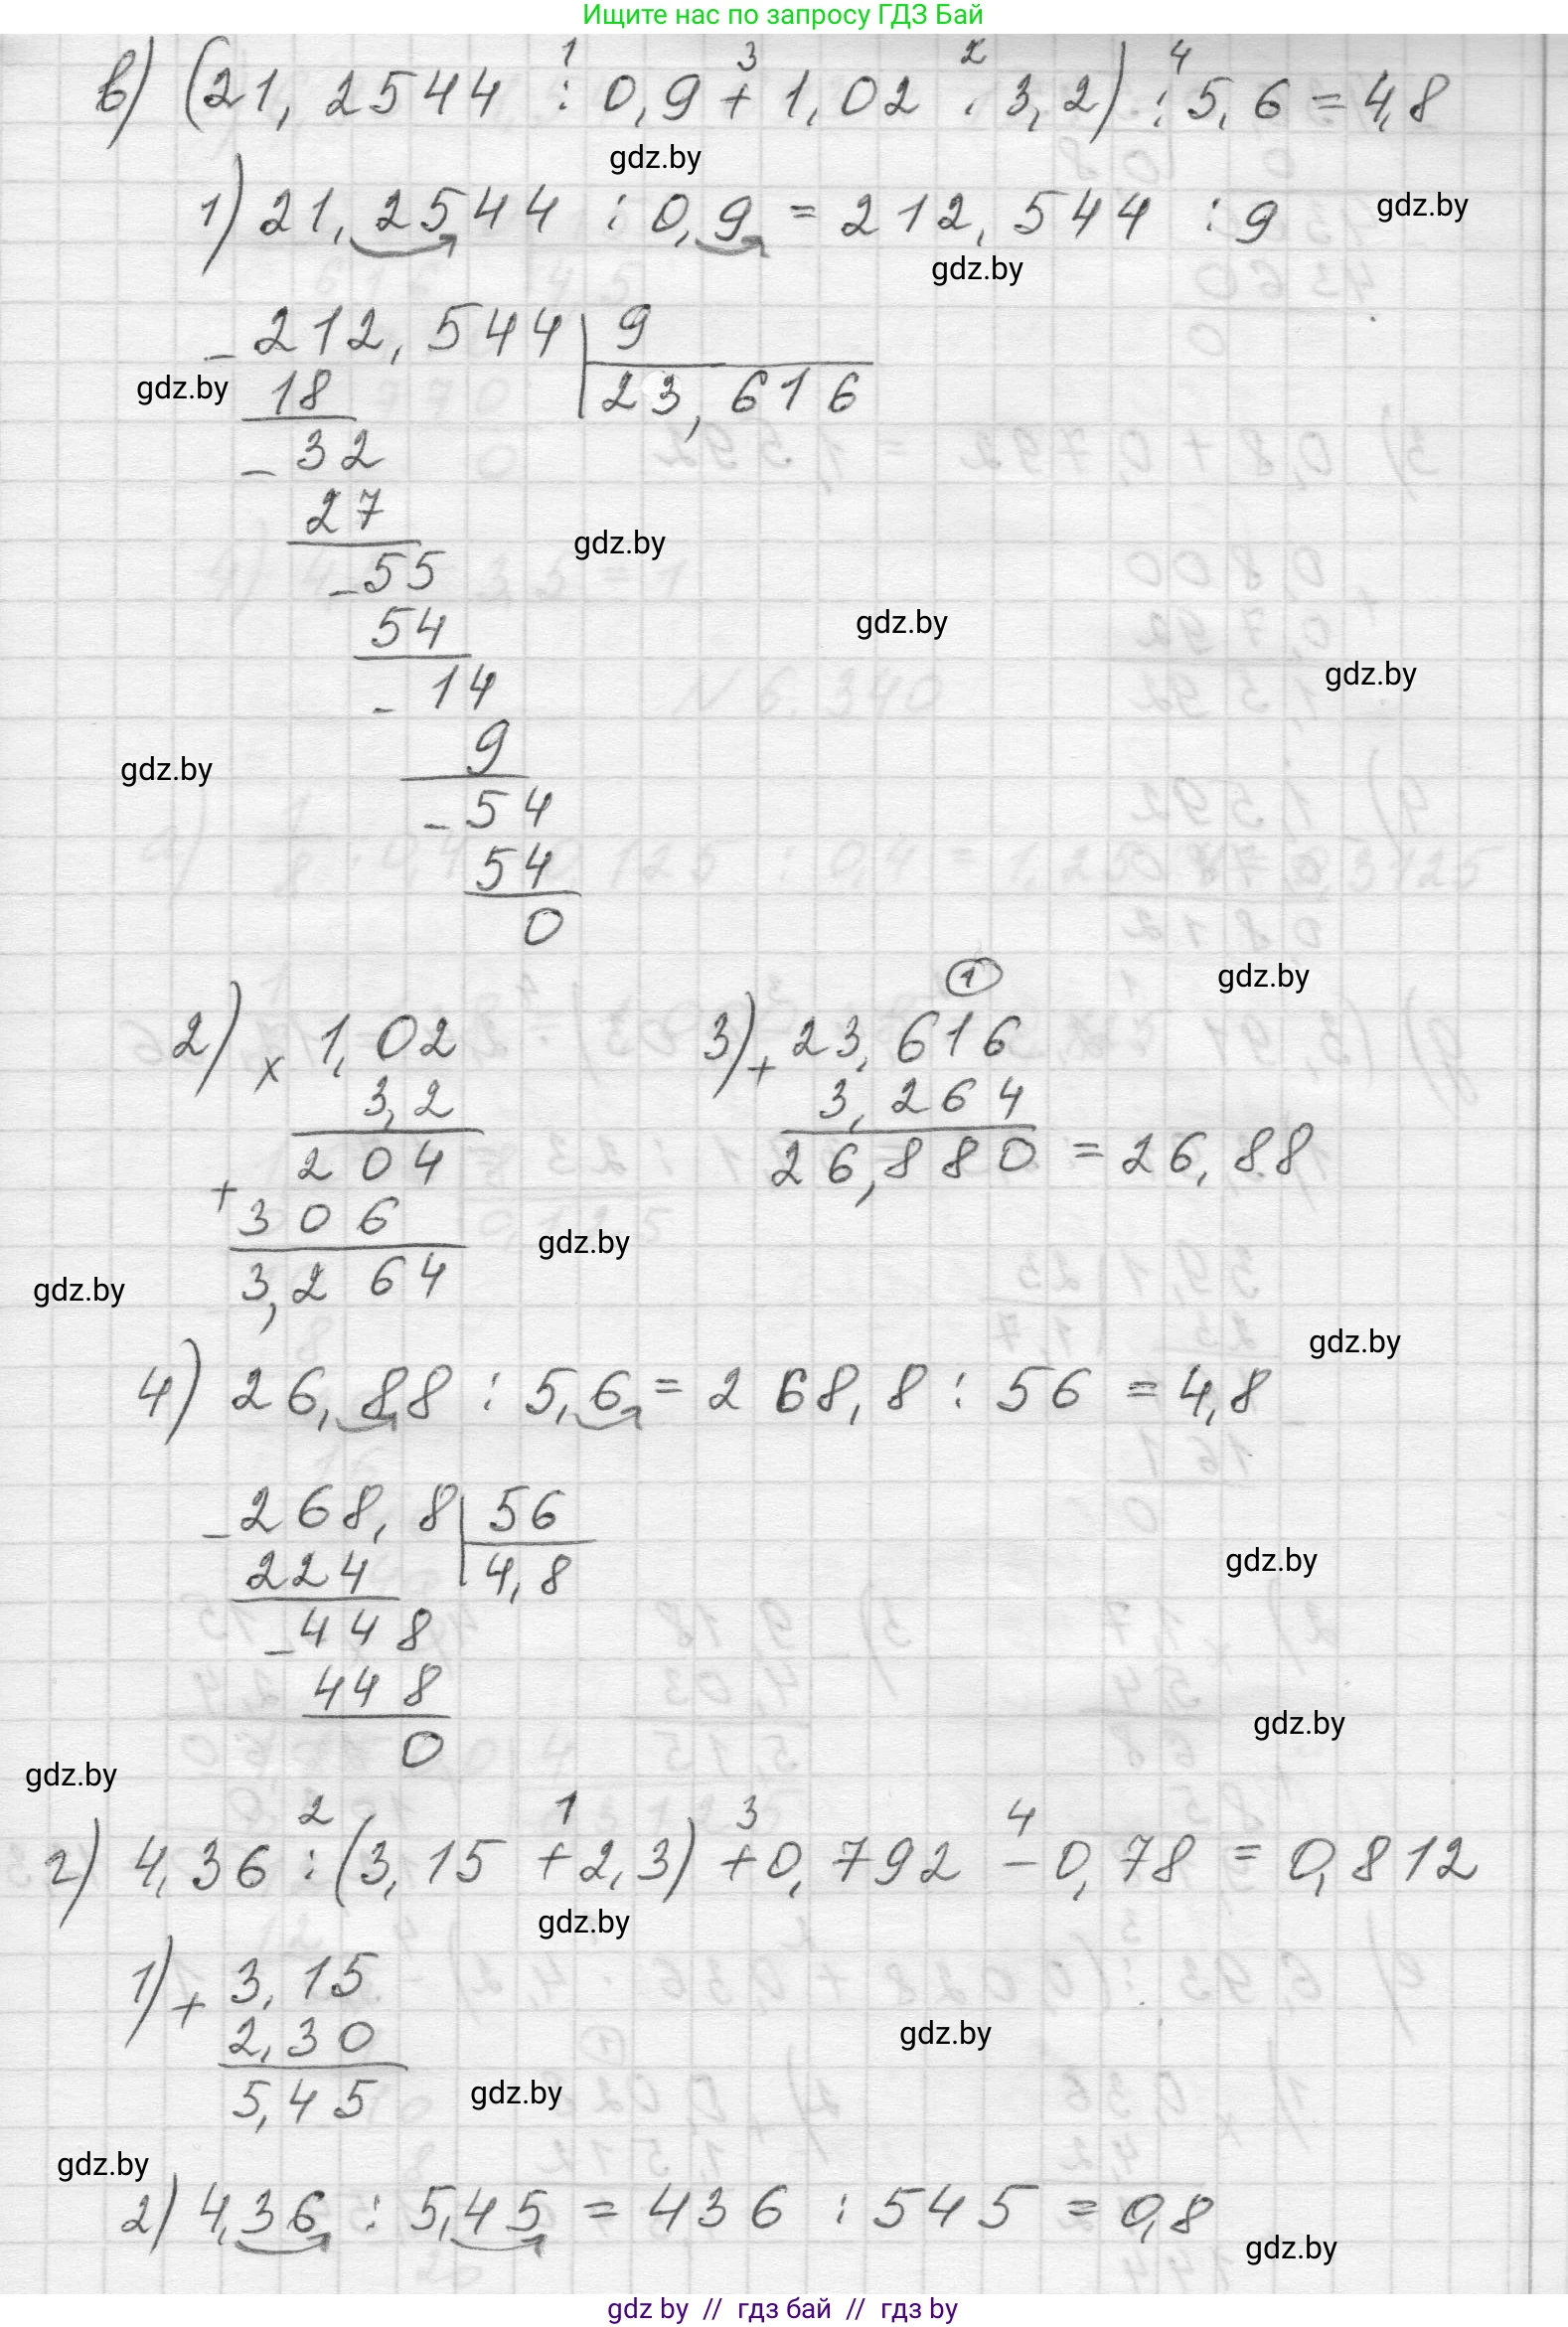 Ищите нас по запросу ГДЗ Бай
1 3 2 4
в) (21,2544 : 0,9 + 1,02 · 3,2) : 5,6 = 4,8
gdz.by
1) 21,2544 : 0,9 = 212,544 : 9
gdz.by
gdz.by
- 212,544 | 9
gdz.by 18 23,616
- 32
27
gdz.by
- 55
54
gdz.by
gdz.by
- 14
9
gdz.by
- 54
54
0
gdz.by
2) × 1,02
3,2
204
+ 306
3,264
1
3) + 23,616
3,264
26,880 = 26,88
gdz.by
gdz.by
gdz.by
4) 26,88 : 5,6 = 268,8 : 56 = 4,8
- 268,8 | 56
224 4,8
gdz.by
- 448
448
0
gdz.by
gdz.by
2 1 3 4
г) 4,36 : (3,15 + 2,3) + 0,792 - 0,78 = 0,812
gdz.by
1) + 3,15
2,30
5,45
gdz.by
gdz.by
gdz.by
2) 4,36 : 5,45 = 436 : 545 = 0,8
gdz.by
gdz by // гдз бай // гдз by